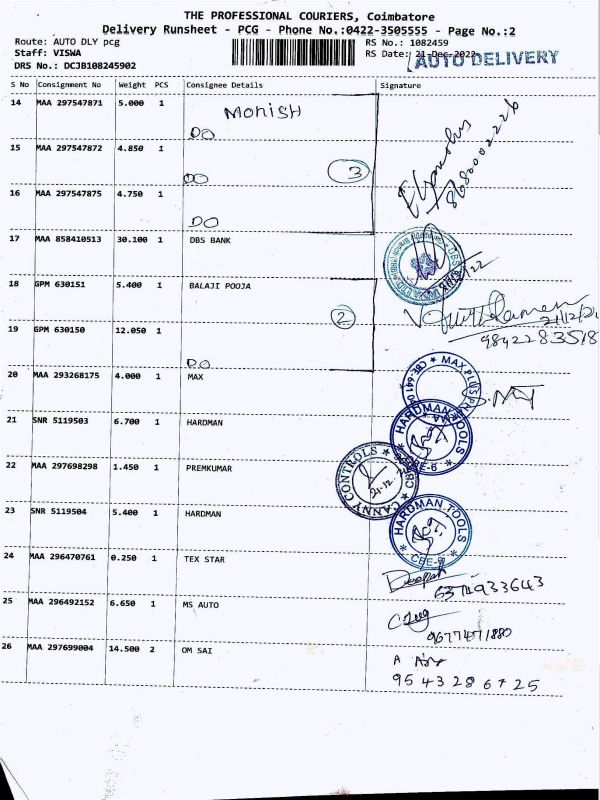 THE PROFESSIONAL COURIERS, Coimbatore
Delivery Runsheet - PCG - Phone No.:0422-3505555 - Page No.:2
Route: AUTO DLY pcg
Staff: VISWA
DRS No.: DCJB108245902
RS No.: 1082459
RS Date: 21-Dec-2022
AUTO DELIVERY
S No Consignment No Weight PCS Consignee Details Signature
14 MAA 297547871 5.000 1 MoniSH
DO
15 MAA 297547872 4.850 1
DO 3
16 MAA 297547875 4.750 1
DO
8680002226
17 MAA 858410513 30.100 1 DBS BANK
18 GPM 630151 5.400 1 BALAJI POOJA
2
19 GPM 630150 12.050 1
DO
21/12/22
9842283518
20 MAA 293268175 4.000 1 MAX
21 SNR 5119503 6.700 1 HARDMAN
HARDMAN TOOLS
CBE-6
22 MAA 297698298 1.450 1 PREMKUMAR
CANNY CONTROLS
23 SNR 5119504 5.400 1 HARDMAN
HARDMAN TOOLS
CBE-6
24 MAA 296470761 0.250 1 TEX STAR
Deepak
25 MAA 296492152 6.650 1 MS AUTO
9677471880
26 MAA 297699004 14.500 2 OM SAI
9543286725